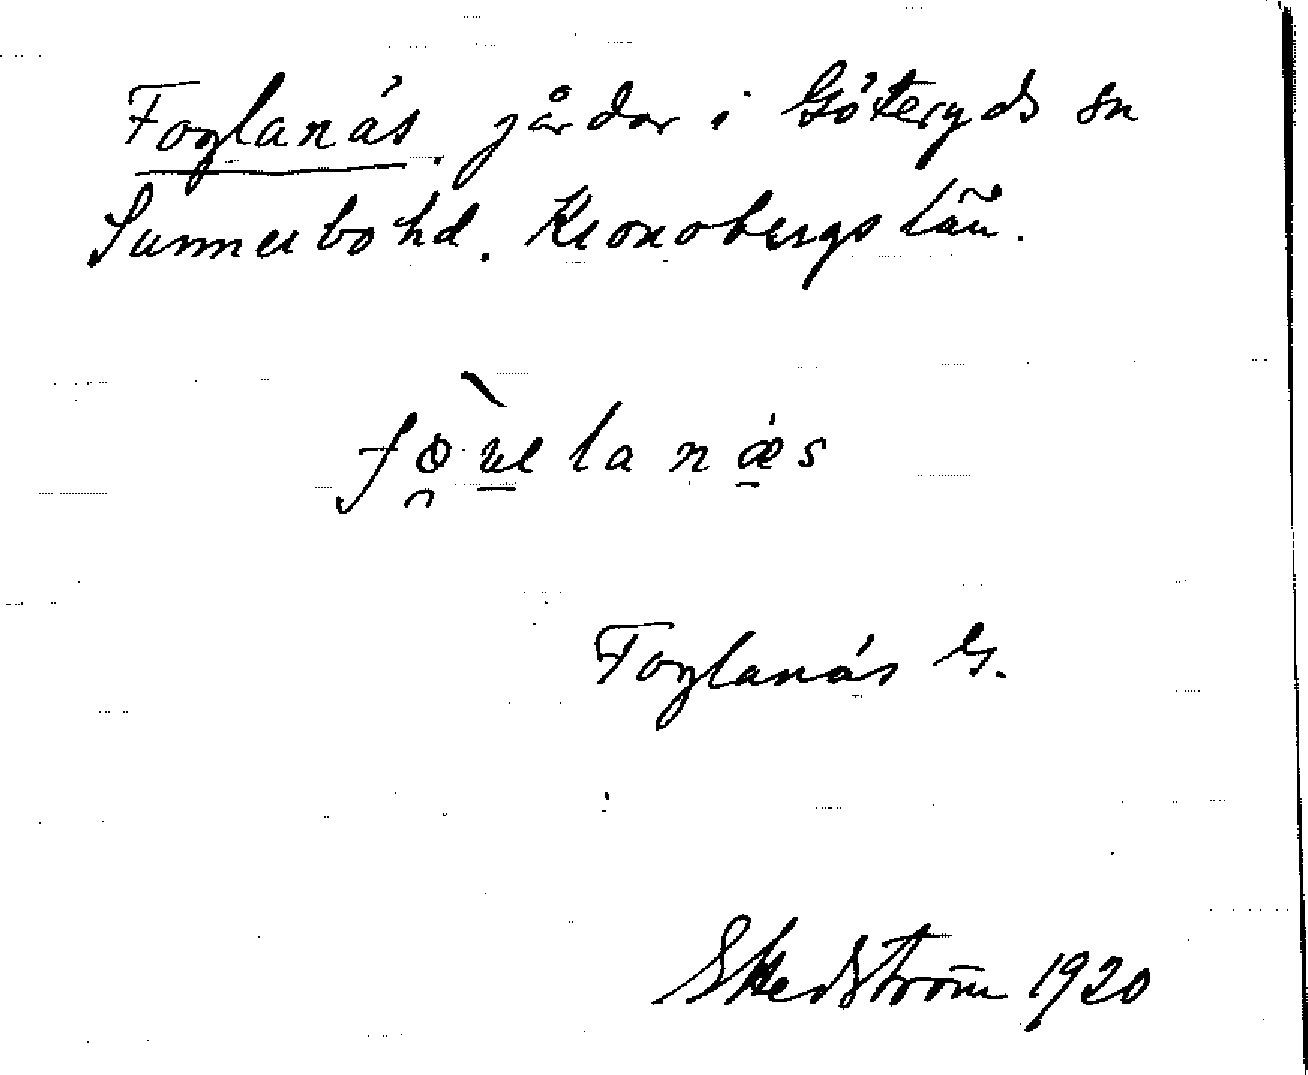 Foglanäs. gårdar i Göteryds sn
Sunnerbo hd. Kronobergs län.
fövelanæs
Foglanäs G.
S Hedström 1920